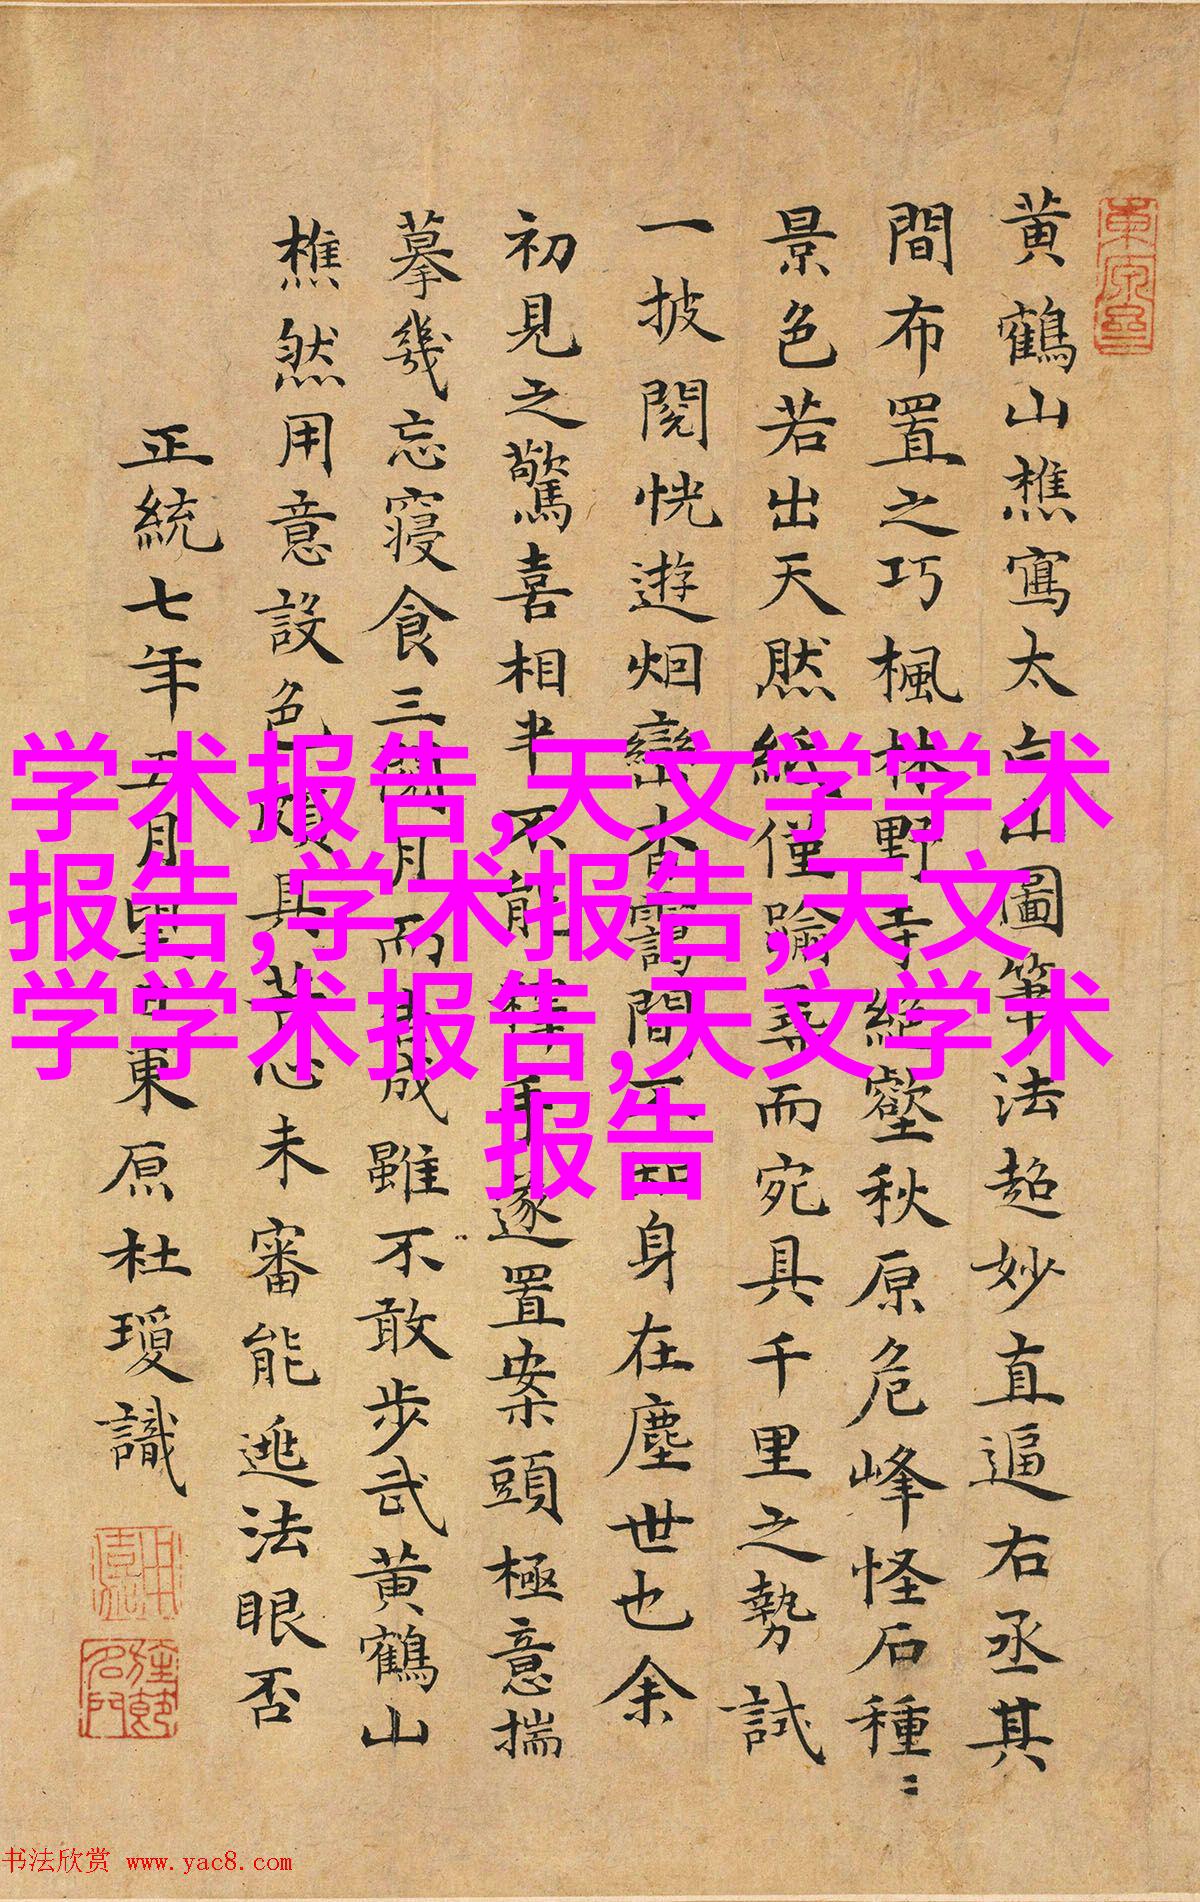 黄鶴山樵寫太白山圖筆法超妙直逼右丞其
間布置之巧楓林野寺絕壑秋原危峰怪石種:
景色若出天然紙僅踰尋而宛具千里之勢試
一披閱恍遊烟巒杳靄間不知身在塵世也余
初見之驚喜相半不能釋手遂置案頭極意揣
摹幾忘寢食三閱月而甫成雖不敢步武黄鶴山
樵然用意設色頗具苦心未審能逃法眼否
正統七年五月望日東原杜瓊識
学术报告,天文学学术
报告,学术报告,天文
学学术报告,天文学术
报告
书法欣赏 www.yac8.com